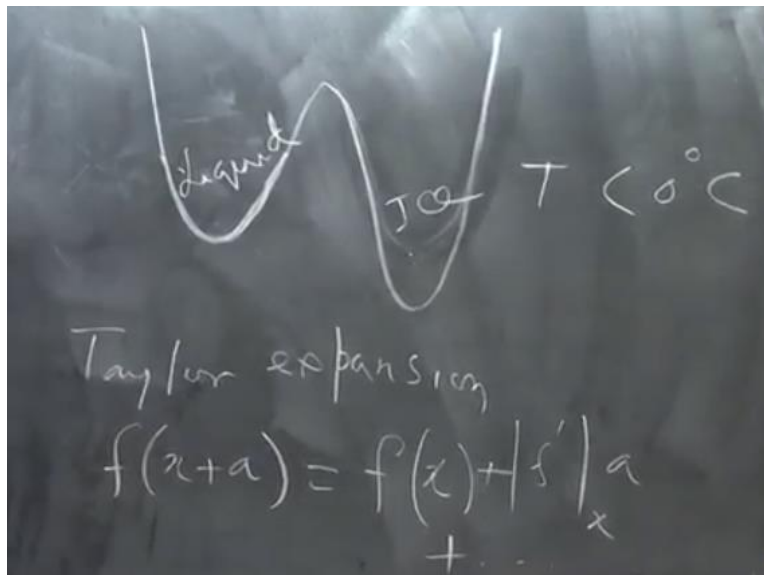 Liquid
Ice T < 0°C
Taylor expansion
f(x+a) = f(x) + |f'|ₓ a
+ ...